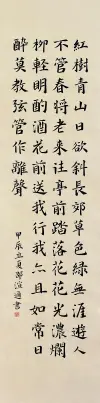 紅樹青山日欲斜長郊草色綠無涯遊人
不管春將老來往亭前踏落花花光濃爛
柳輕明酌酒花前送我行我亦且如常日
醉莫教弦管作離聲
甲辰夏書